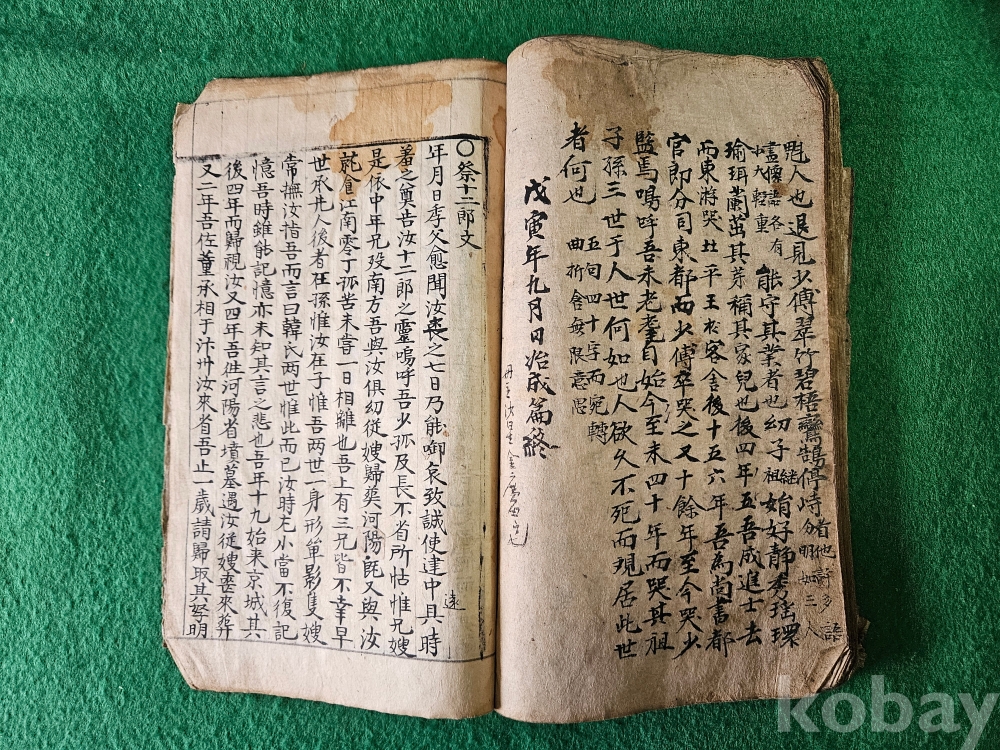 魁人也退見少傅翠竹碧梧鸞鵠停峙
者他許多語
分明如三人
能守其業者也幼子娟好靜秀瑤環
瑜珥蘭茁其芽稱其家兒也後四年五吾成進士去
而東游哭北平王於客舍後十五六年吾為尚書都
官郎分司東都而少傅卒哭之又十餘年至今哭少
監焉嗚呼吾未老耄自始今至未四十年而哭其祖
子孫三世于人世何如也人欲久不死而現居此世
者何也
五句四十字而宛轉
曲折含無限意思
戊寅年九月日冶成篇終
〇祭十二郎文
年月日季父愈聞汝喪之七日乃能啣哀致誠使建中具時
遠
羞之奠告汝十二郎之靈嗚呼吾少孤及長不省所怙惟兄嫂
是依中年兄歿南方吾與汝俱幼從嫂歸葬河陽旣又與汝
就食江南零丁孤苦未嘗一日相離也吾上有三兄皆不幸早
世承先人後者在孫惟汝在子惟吾兩世一身形單影隻嫂
常撫汝指吾而言曰韓氏兩世惟此而已汝時尤小當不復記
憶吾時雖能記憶亦未知其言之悲也吾年十九始來京城其
後四年而歸視汝又四年吾往河陽省墳墓遇汝從嫂喪來葬
又二年吾佐董丞相于汴州汝來省吾止一歲請歸取其孥明
kobay